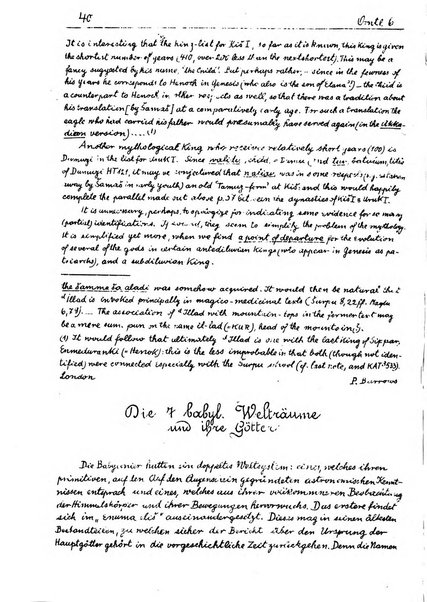 40 Onts 6
It is interesting that the king-list for Kiš I, so far as it is known, this King is given
the shortest number of years (410, over 200 less than the next shortest). This may be a
fancy suggested by his name, "the Child". But perhaps rather, - since in the fewness of
his years he corresponds to Henoch in Genesis (who also is the son of ) - the child is
a counterpart to Henoch in other respects as well, so that there was a tradition about
his translation [by Šamaš] at a comparatively early age. For such a translation the
eagle who had carried his father would presumably have served again (in the
version) .... (1)
Another mythological King who receives relatively short years (100) is
Dumugi in the list for Uruk I. Since
of Dumugi HT it may be conjectured that was in some respects
away by Šamaš in early youth) an old "Tamuz-form" at Kiš and this would happily
complete the parallel made out above p. 37 between the dynasties of Kiš I & Uruk I.
It is unnecessary, perhaps, to apologize for indicating some evidence for so many
(partial) identifications. If sound, they seem to simplify the problem of the mythology.
It is simplified yet more, when we find a point of departure for the evolution
of several of the gods in certain antediluvian Kings (who appear in Genesis as pa-
triarchs), and a subdiluvian King.
the šamma ša aladi was somehow acquired. It would then be natural that
Illad is invoked principally in magico-medicinal texts (Surpu 8, 22 ff. Maqlu
6, 7 ) .... The association of Illad with mountain-tops in the former text may
be a mere sum. pun on the name il-lad (= KUR), head of the mountains.
(1) It would follow that ultimately Illad is one with the last King of Sippar,
Enmeduranki (= Henoch): this is the less improbable in that both (though not iden-
tified) were connected especially with the Surpu school (cf. last note, and KAT 533).
London P. Burrows
Die 7 babyl. Welträume
und ihre Götter
Die Babylonier hatten ein doppeltes Weltsystem: eines, welches ihren
primitiven, auf den Augenschein gegründeten astronomischen Kennt-
nissen entsprach und eines, welches aus ihrer vollkommeneren Beobachtung
der Himmelskörper und ihrer Bewegungen hervorwuchs. Das erstere findet
sich in „Enuma eliš" auseinandergesetzt. Dieses mag in seinen ältesten
Bestandteilen, zu welchen sicher der Bericht über den Ursprung der
Hauptgötter gehört in die vorgeschichtliche Zeit zurückgehen. Denn die Namen